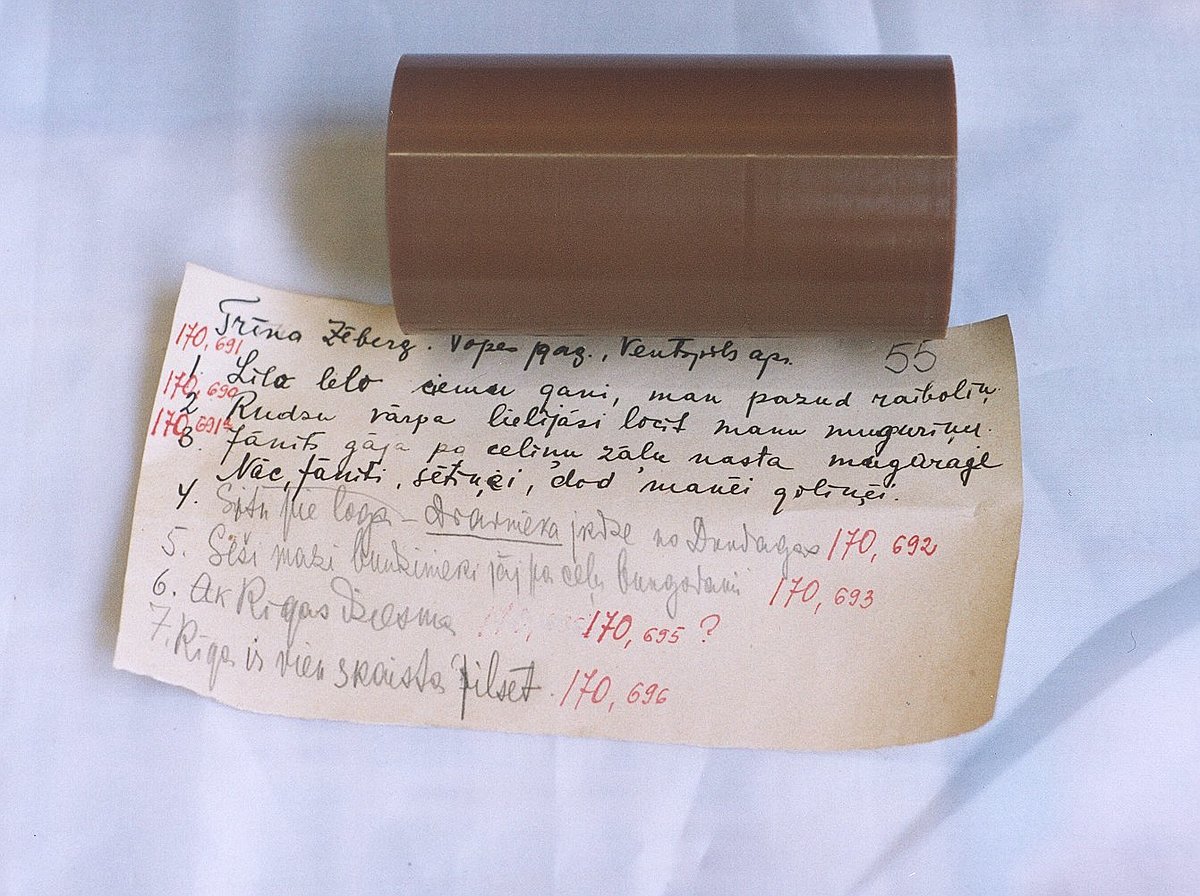 Trīna Zēberg. Popes pag., Ventspils apr. 55
170,691
1. Lila lelo ciema gani, man pazud raiboliņ.
170,690
2. Rudzu vārpa lielījāsi locīt manu muguriņu.
170,691a
3. Jānīts gāja pa celiņu zāļu nasta mugurage
Nāc, Jānīti, sētiņēi, dod manēi
4. Sēdu pie loga – no Dundagas 170,692
5. Seši mazi bundzinieki jāj pa ceļu bungodami 170,693
6. Ak Rīgas Dziesma 170,695 ?
7. Rīga is vien skaista Pilsēt. 170,696